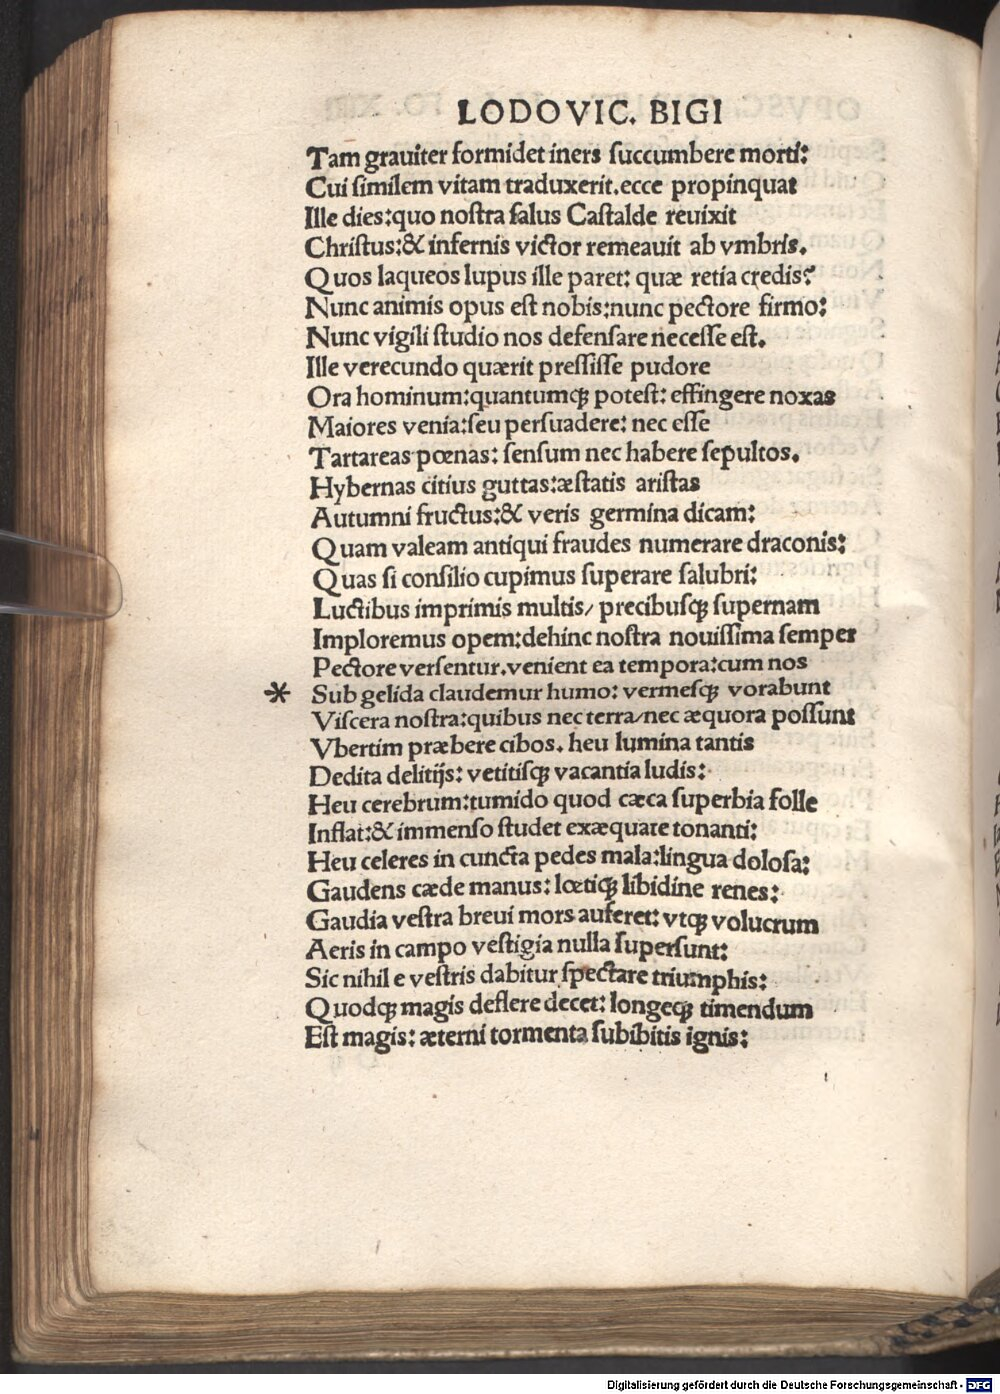 LODOVIC. BIGI
Tam grauiter formidet iners ſuccumbere morti:
Cui ſimilem vitam traduxerit.ecce propinquat
Ille dies:quo noſtra ſalus Caſtalde reuixit
Chriſtus:& infernis victor remeauit ab vmbris.
Quos laqueos lupus ille paret: quæ retia credis?
Nunc animis opus eſt nobis:nunc pectore firmo:
Nunc vigili ſtudio nos defenſare neceſſe eſt.
Ille verecundo quærit preſſiſſe pudore
Ora hominum:quantumqꝫ poteſt: effingere noxas
Maiores venia:ſeu perſuadere: nec eſſe
Tartareas pœnas: ſenſum nec habere ſepultos.
Hybernas citius guttas:æſtatis ariſtas
Autumni fructus:& veris germina dicam:
Quam valeam antiqui fraudes numerare draconis:
Quas ſi conſilio cupimus ſuperare ſalubri:
Luctibus imprimis multis/ precibuſqꝫ ſupernam
Imploremus opem:dehinc noſtra nouiſſima ſemper
Pectore verſentur.venient ea tempora:cum nos
* Sub gelida claudemur humo: vermeſqꝫ vorabunt
Viſcera noſtra:quibus nec terra/nec æquora poſſunt
Vbertim præbere cibos. heu lumina tantis
Dedita delitijs: vetitiſqꝫ vacantia ludis:
Heu cerebrum:tumido quod cæca ſuperbia folle
Inflat:& immenſo ſtudet exæquare tonanti:
Heu celeres in cuncta pedes mala:lingua doloſa:
Gaudens cæde manus: lœtiqꝫ libidine renes:
Gaudia veſtra breui mors auferet: vtqꝫ volucrum
Aeris in campo veſtigia nulla ſuperſunt:
Sic nihil e veſtris dabitur ſpectare triumphis:
Quodqꝫ magis deflere decet: longeqꝫ timendum
Eſt magis: æterni tormenta ſubibitis ignis:
Digitalisierung gefördert durch die Deutsche Forschungsgemeinschaft - DFG